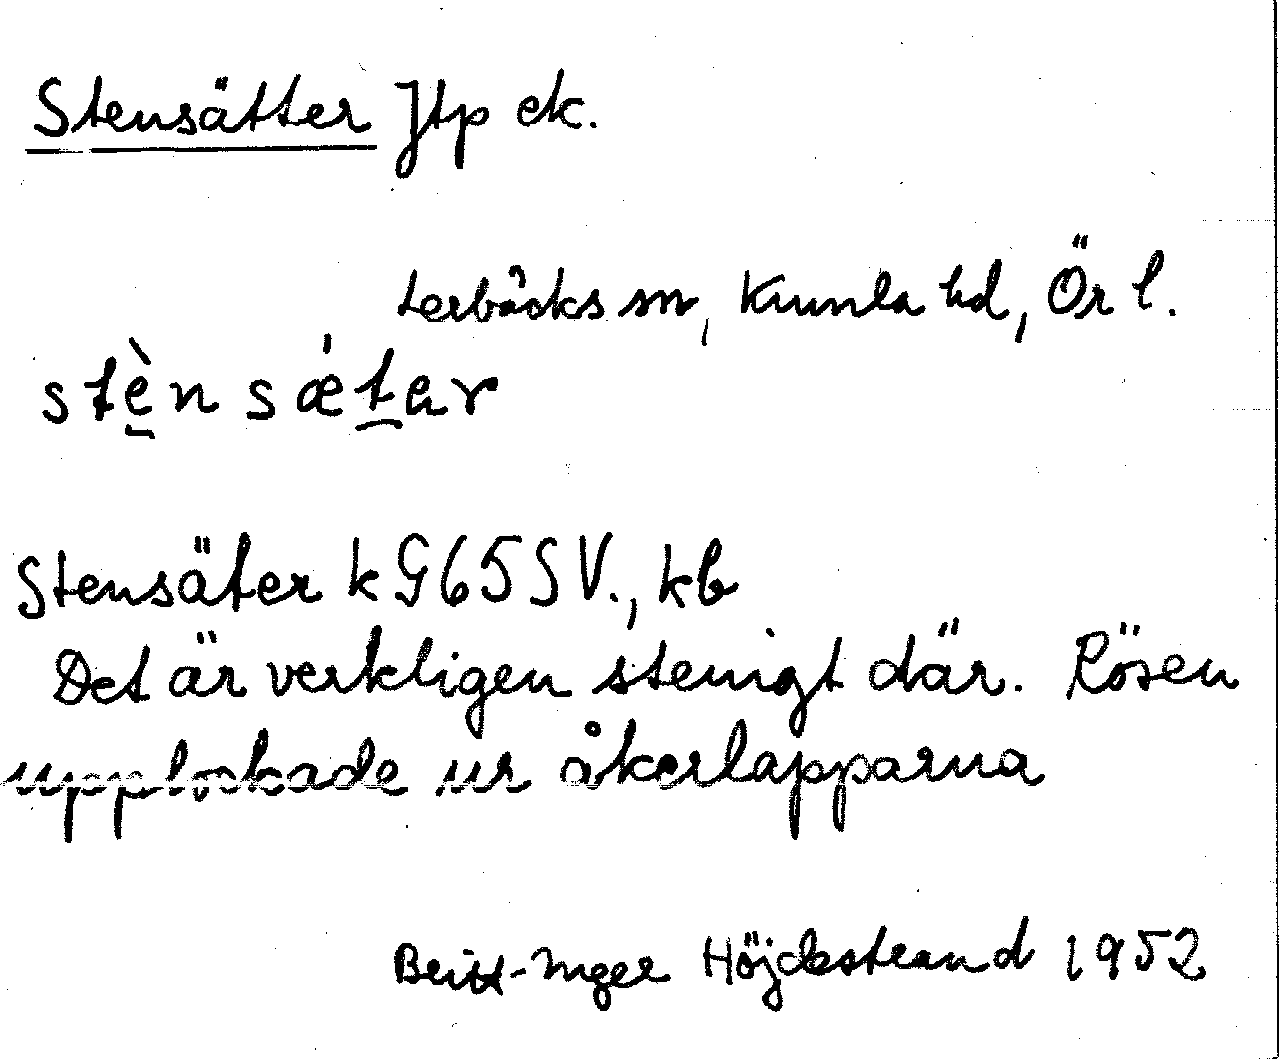 Stensätter Jtp ek.
Lerbäcks sn, Kumla hd, Ör l.
stè̠n sǽt̠ar
Stensäter k G65 SV., kb
Det är verkligen stenigt där. Rösen
upplockade ur åkerlapparna
Britt-Inger Höjdestrand 1952